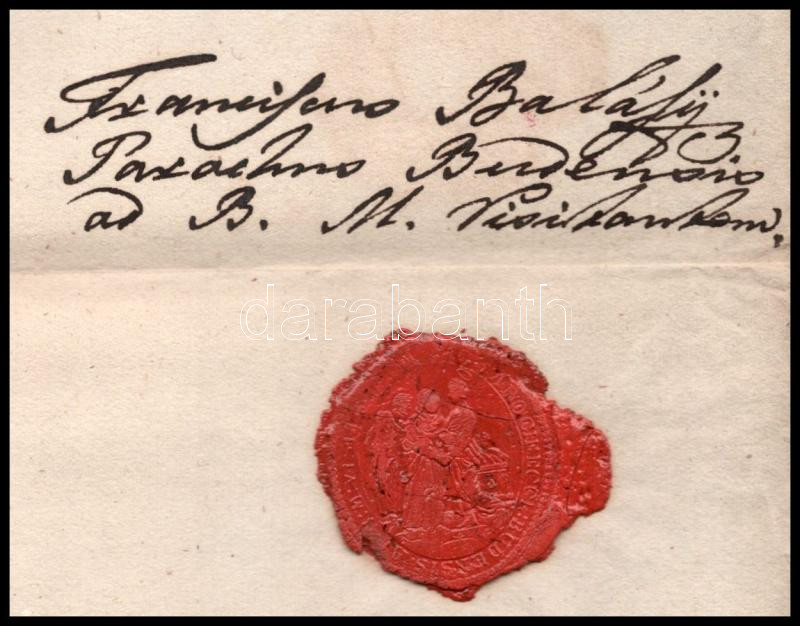 Francisco Balásÿ
Parocho Budensis
ad B. M. Visitantem.
darabanth
BUDENSIS